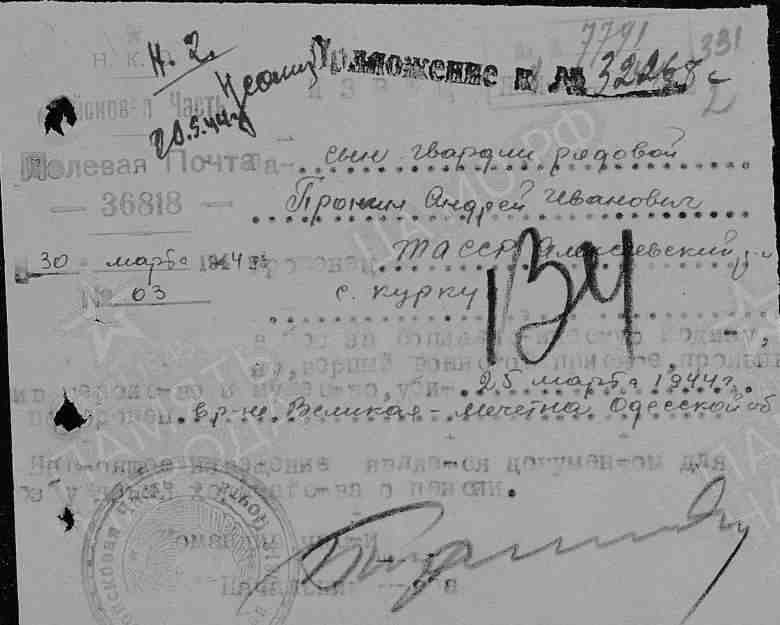 7791
331
2
Н. 2.
Приложение к № 32268 с
Н.К.О.
ИЗВЕЩЕНИЕ
Войсковая Часть
20.5.44г
Полевая Почта
— 36818 —
сын гвардии рядовой
Пронин Андрей Иванович
30 марта 1944 г.
ТАССР Алексеевский р-н
№ 03
с. курку
ВЧ
в бою за социалистическую родину,
верный военной присяге, проявив
геройство и мужество, убит 25 марта 1944г.
похоронен в р-не Великая-мечетна Одесской об
Настоящее извещение является документом для
возбуждения ходатайства о пенсии.
Командир части
Начальник